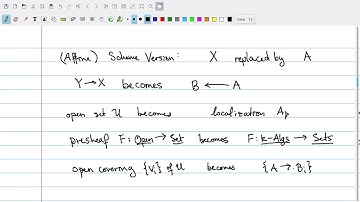 (Affine) Scheme Version: X replaced by A
Y → X becomes B ← A
open set U becomes localization Ap
presheaf F: Open → Set becomes F: k-Algs → Sets
open covering {Vi} of U becomes {A → Bi}